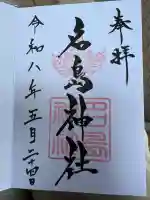 奉拝
名島神社
令和八年五月二十四日